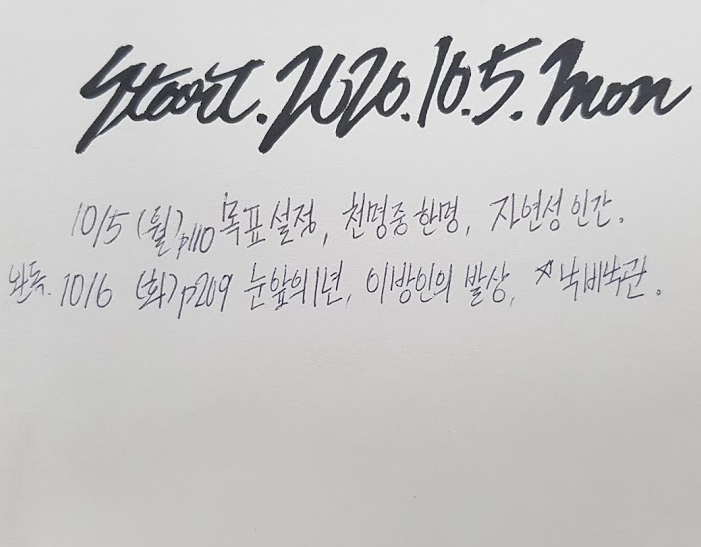 Start. 2020.10.5. Mon
10/5 (월) p110 목표 설정, 천명중 한명, 자연성 인간.
완독. 10/6 (화) p209 눈앞의 1년, 이방인의 발상, ☆낙비낙관.